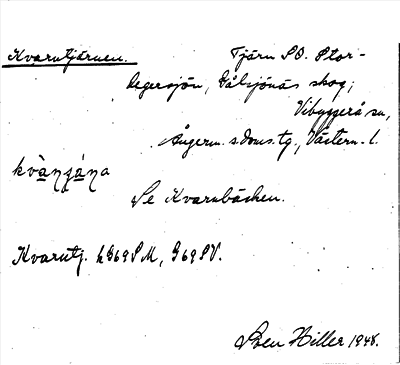 Kvarntjärnen. Tjärn SO. Stor-
degersjön, Gålsjönäs skog;
Vibyggerå sn,
Ångerm. s.doms.tg., Västern. l.
kvàṇʒáṇa
Se Kvarnbäcken.
Kvarntj. hG69SM, G69SV.
Sven Hiller 1948.